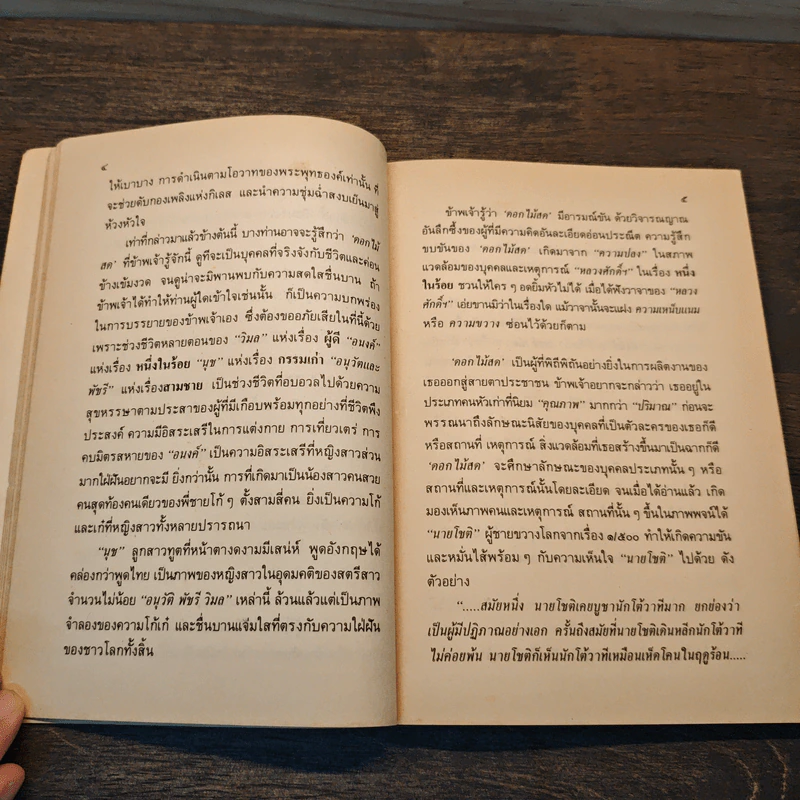 ๔
ให้เบาบาง การดำเนินตามโอวาทของพระพุทธองค์เท่านั้น ที่
จะช่วยดับกองเพลิงแห่งกิเลส และนำความชุ่มฉ่ำสงบเย็นมาสู่
ห้วงหัวใจ
เท่าที่กล่าวมาแล้วข้างต้นนี้ บางท่านอาจจะรู้สึกว่า ‘ดอกไม้
สด’ ที่ข้าพเจ้ารู้จักนี้ ดูทีจะเป็นบุคคลที่จริงจังกับชีวิตและค่อน
ข้างเข้มงวด จนดูน่าจะมีพานพบกับความสดใสชื่นบาน ถ้า
ข้าพเจ้าได้ทำให้ท่านผู้ใดเข้าใจเช่นนั้น ก็เป็นความบกพร่อง
ในการบรรยายของข้าพเจ้าเอง ซึ่งต้องขออภัยเสียในที่นี้ด้วย
เพราะช่วงชีวิตหลายตอนของ “วิมล” แห่งเรื่อง ผู้ดี “อนงค์”
แห่งเรื่อง หนึ่งในร้อย “นุช” แห่งเรื่อง กรรมเก่า “อนุวัตและ
พัชรี” แห่งเรื่องสามชาย เป็นช่วงชีวิตที่อบอวลไปด้วยความ
สุขหรรษาตามประสาของผู้ที่มีเกือบพร้อมทุกอย่างที่ชีวิตพึง
ประสงค์ ความมีอิสระเสรีในการแต่งกาย การเที่ยวเตร่ การ
คบมิตรสหายของ “อนงค์” เป็นความอิสระเสรีที่หญิงสาวส่วน
มากใฝ่ฝันอยากจะมี ยิ่งกว่านั้น การที่เกิดมาเป็นน้องสาวคนสวย
คนสุดท้องคนเดียวของพี่ชายโก้ ๆ ตั้งสามสี่คน ยิ่งเป็นความโก้
และเก๋ที่หญิงสาวทั้งหลายปรารถนา
“นุช” ลูกสาวทูตที่หน้าตางดงามมีเสน่ห์ พูดอังกฤษได้
คล่องกว่าพูดไทย เป็นภาพของหญิงสาวในอุดมคติของสตรีสาว
จำนวนไม่น้อย “อนุวัติ พัชรี วิมล” เหล่านี้ ล้วนแล้วแต่เป็นภาพ
จำลองของความโก้เก๋ และชื่นบานแจ่มใสที่ตรงกับความใฝ่ฝัน
ของชาวโลกทั้งสิ้น
๕
ข้าพเจ้ารู้ว่า ‘ดอกไม้สด’ มีอารมณ์ขัน ด้วยวิจารณญาณ
อันลึกซึ้งของผู้ที่มีความคิดอันละเอียดอ่อนประณีต ความรู้สึก
ขบขันของ ‘ดอกไม้สด’ เกิดมาจาก “ความปลง” ในสภาพ
แวดล้อมของบุคคลและเหตุการณ์ “หลวงศักดิ์ฯ” ในเรื่อง หนึ่ง
ในร้อย ชวนให้ใคร ๆ อดยิ้มหัวไม่ได้ เมื่อได้ฟังวาจาของ “หลวง
ศักดิ์ฯ” เอ่ยขานมิว่าในเรื่องใด แม้วาจานั้นจะแฝง ความเหน็บแนม
หรือ ความขวาง ซ่อนไว้ด้วยก็ตาม
‘ดอกไม้สด’ เป็นผู้ที่พิถีพิถันอย่างยิ่งในการผลิตงานของ
เธอออกสู่สายตาประชาชน ข้าพเจ้าอยากจะกล่าวว่า เธออยู่ใน
ประเภทคนหัวเก่าที่นิยม “คุณภาพ” มากกว่า “ปริมาณ” ก่อนจะ
พรรณาถึงลักษณะนิสัยของบุคคลที่เป็นตัวละครของเธอก็ดี
หรือสถานที่ เหตุการณ์ สิ่งแวดล้อมที่เธอสร้างขึ้นมาเป็นฉากก็ดี
‘ดอกไม้สด’ จะศึกษาลักษณะของบุคคลประเภทนั้น ๆ หรือ
สถานที่และเหตุการณ์นั้นโดยละเอียด จนเมื่อได้อ่านแล้ว เกิด
มองเห็นภาพคนและเหตุการณ์ สถานที่นั้น ๆ ขึ้นในภาพพจน์ได้
“นายโชติ” ผู้ชายขวางโลกจากเรื่อง ๑/๕๐๐ ทำให้เกิดความขัน
และหมั่นไส้พร้อม ๆ กับความเห็นใจ “นายโชติ” ไปด้วย ดัง
ตัวอย่าง
“.....สมัยหนึ่ง นายโชติเคยบูชานักโต้วาทีมาก ยกย่องว่า
เป็นผู้มีปฏิภาณอย่างเอก ครั้นถึงสมัยที่นายโชติเดินหลีกนักโต้วาที
ไม่ค่อยพ้น นายโชติก็เห็นนักโต้วาทีเหมือนเห็ดโคนในฤดูร้อน.....